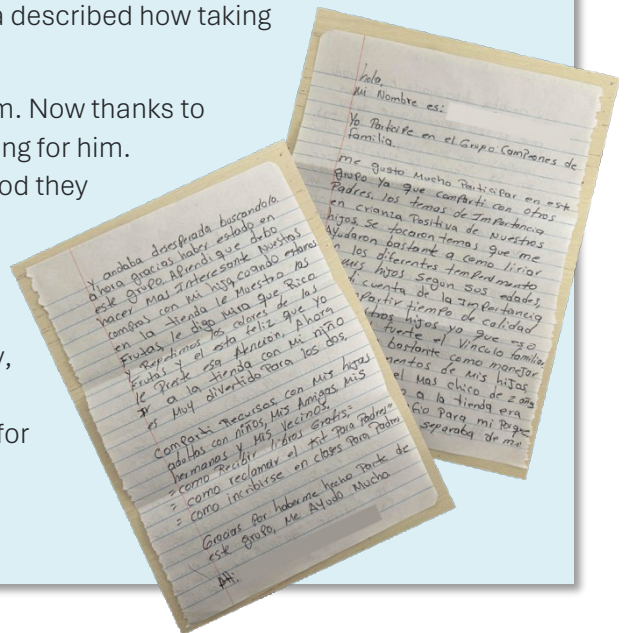 a described how taking
m. Now thanks to
ng for him.
od they
y,
for
hola,
Mi Nombre es:
Yo Participe en el Grupo Campeones de
familia.
me gusto Mucho Participar en este
grupo Ya que comparti con otros
Padres, los temas de Importancia
en crianza Positiva de Nuestros
hijos. Se tocaron temas que me
ayudaron bastante a como liriar
n los diferentes temperamento
mis hijos según sus edades.
cuenta de la Importancia
partir tiempo de calidad
tros hijos ya que eso
fuerte el vinculo familiar
bastante como manejar
mentos de Mis hijos
el Mas chico de 2 año
a la tienda era
fio Para mi Porque
separaba de mi
Y andaba desesperada buscandolo.
ahora gracias haber estado en
este grupo Aprendi que debo
hacer Mas Interesante Nuestras
compras con Mi hijo cuando estamos
en la tienda le Muestro las
Frutas le digo Mira que Rico
y Repetimos los colores de las
Frutas y el esta feliz que yo
le Preste esa Atención, Ahora
ir a la tienda con Mi niño
es Muy divertido Para los dos.
Comparti Recursos con Mis hijas
adultas con niños, Mis Amigas, Mis
hermanas y Mis Vecinos.
= como Recibir libros Gratis:
= como reclamar el Kit Para Padres=
= como incribirse en clases Para Padre
Gracias Por haberme hecho Parte de
este grupo, Me Ayudo Mucho
Att: